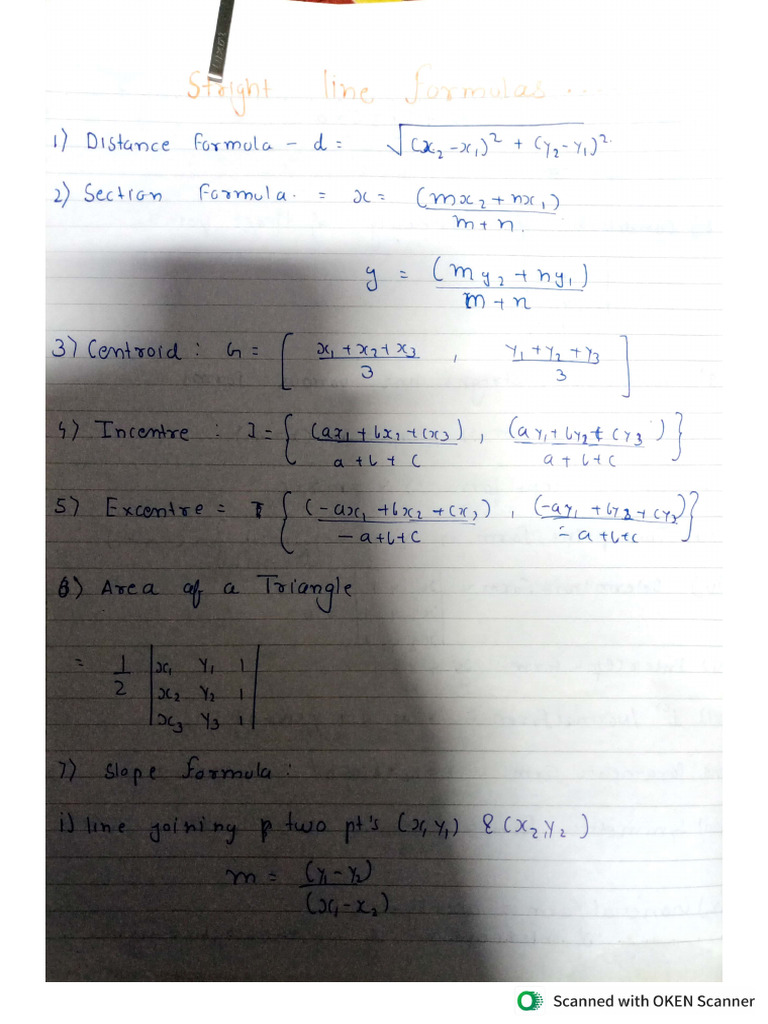 Straight line formulas ...
1) Distance formula - d = √(x₂-x₁)² + (y₂-y₁)².
2) Section formula. = x = (mx₂+nx₁) / m+n.
y = (my₂+ny₁) / m+n
3) Centroid : G = [ x₁+x₂+x₃ / 3 , y₁+y₂+y₃ / 3 ]
4) Incentre : I = { (ax₁+bx₂+cx₃) / a+b+c , (ay₁+by₂+cy₃) / a+b+c }
5) Excentre = I { (-ax₁+bx₂+cx₃) / -a+b+c , (-ay₁+by₂+cy₃) / -a+b+c }
6) Area of a Triangle
= 1/2 | x₁ y₁ 1 |
| x₂ y₂ 1 |
| x₃ y₃ 1 |
7) Slope formula :
i) line joining two pt's (x₁,y₁) & (x₂,y₂)
m = (y₁-y₂) / (x₁-x₂)
Scanned with OKEN Scanner